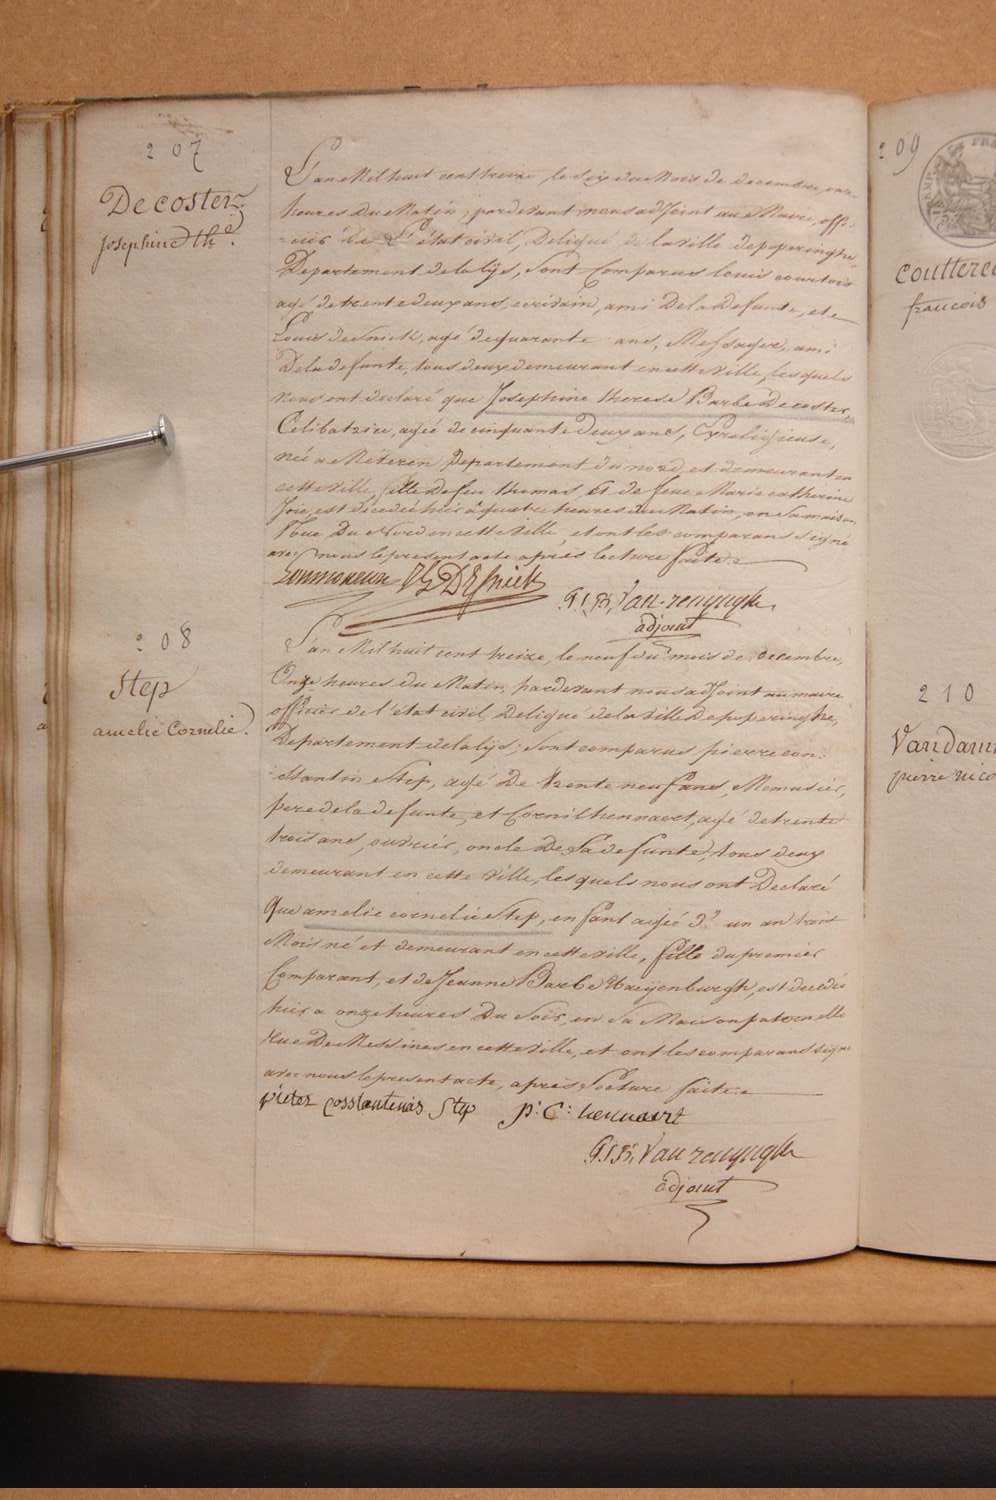 207
Decoster
Josephine Th.e
L'an Mil huit cent treize, le six du Mois de decembre, onze
heures du Matin, pardevant nous adjoint au Maire, offi-
-cier de L'état civil, Deligué de la ville de poperinghe,
Departement de la lijs, sont Comparus Louis courtois
agé de trente deux ans, ecrivain, ami De la Defunte, et
Louis desmidt, agé de quarante ans, Messager, ami
De la defunte, tous deux demeurant en cette ville, lesquels
nous ont declaré que Josephine therese Barbe Decoster,
Celibatrice, agée de cinquante Deux ans, Exreligieuse,
née a Méteren Departement du nord, et demeurant en
cette ville, fille de feu thomas, et de feue Marie catherine
Joie, est décedé hier à quatre heures du Matin, en sa maison,
Rue Du Nord en cette ville, et ont les comparans signé
avec nous le present acte après lecture faite.
P.J.B. Van renynghe
adjoint
208
Step
amelie Cornelie.
L'an Mil huit cent treize, le neuf du mois de decembre,
Onze heures du Matin, pardevant nous adjoint au maire
officier de l'état civil, Deligué de la ville De poperinghe,
Departement de la lijs; sont comparus pierre con-
-stantin Step, agé De trente neuf ans, Menusier,
pere de la defunte, et Cornil hennaert, agé de trente
trois ans, ouvrier, oncle De La defunte, tous deux
demeurant en cette ville, lesquels nous ont Declaré
Que amelie cornelie Step, enfant agée d' un an trois
Mois né et demeurant en cette ville, fille du premier
Comparant, et de Jeanne Barbe Haeyenburgh, est decedée
hier a onze heures Du Soir, en sa Maison paternelle
rue De Messines en cette ville, et ont les comparans signé
avec nous le present acte, après Lecture faite.
pieter Costantinus Step p: C: hennaert
P.J.B. Van renynghe
adjoint
209
Couttere
francois
210
Vandam
pierre nico